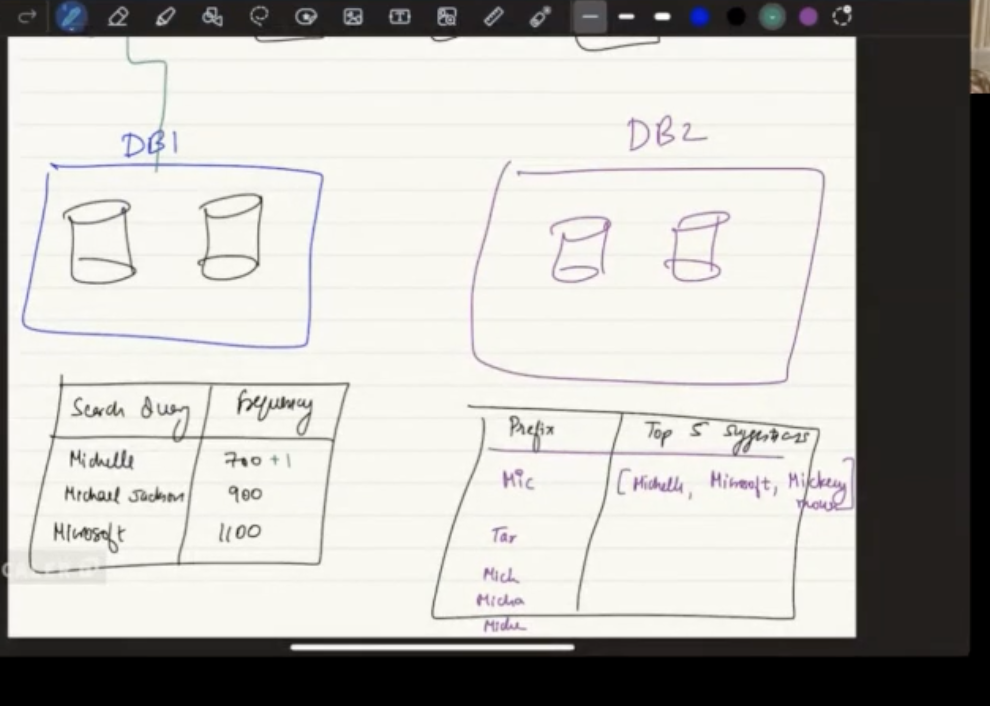 DB1
DB2
Search Query Frequency
Michelle 700 +1
Michael Jackson 900
Microsoft 1100
Prefix Top 5 Suggestions
Mic [Michelle, Microsoft, Mickey
mouse]
Tar
Mich
Micha
Miche